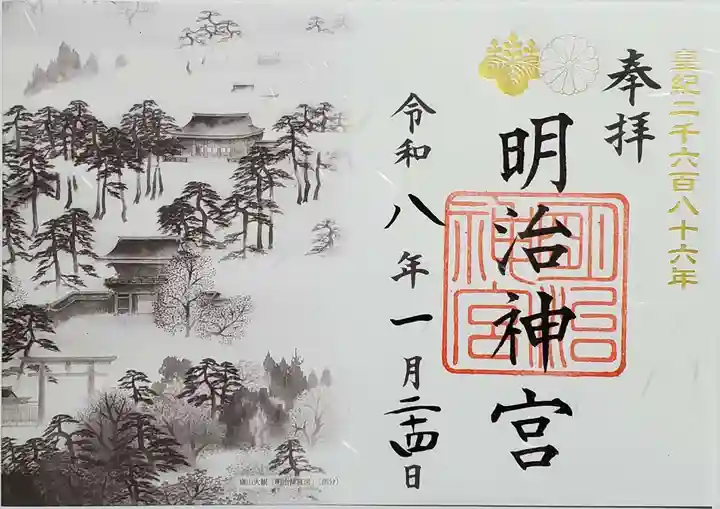 皇紀二千六百八十六年
奉拝
明治神宮
明治神宮
令和八年一月二十四日